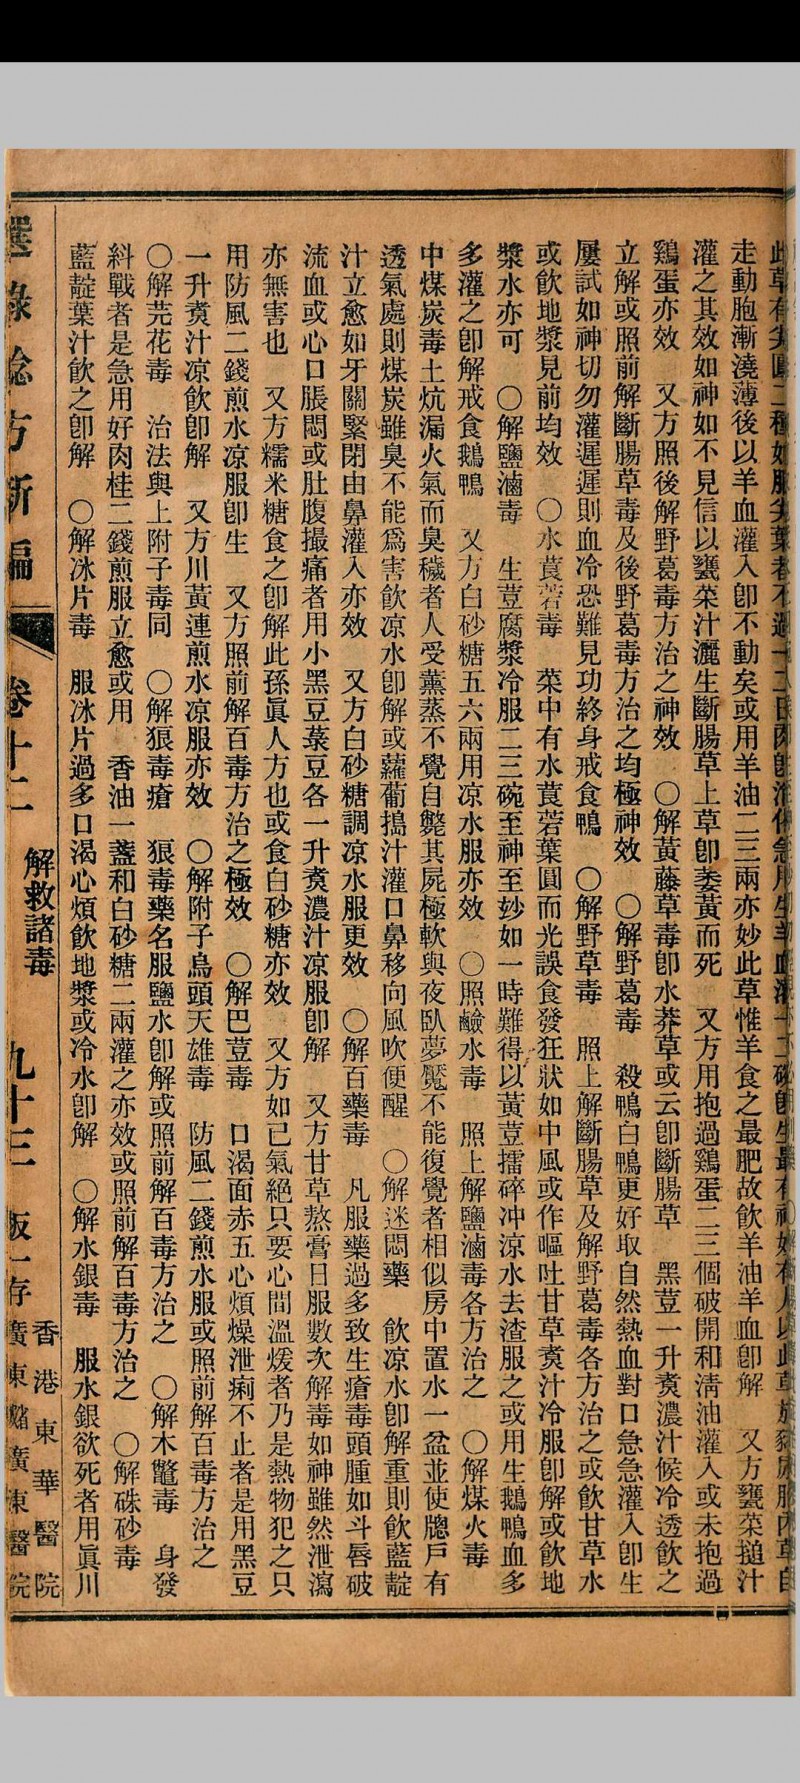 此草有尖圓二種如服尖葉者不過一二日肉卽潰化急用生羊血灌一二碗卽生最有神效有人以此草放豬尿胞內草自
走動胞漸澆薄後以羊血灌入卽不動矣或用羊油二三兩亦妙此草惟羊食之最肥故飲羊油羊血卽解　又方甕菜搥汁
灌之其效如神如不見信以甕菜汁灑生斷腸草上草卽萎黃而死　又方用抱過鷄蛋二三個破開和淸油灌入或未抱過
鷄蛋亦效　又方照後解野葛毒方治之神效　〇解黃藤草毒卽水莽草或云卽斷腸草　黑荳一升煑濃汁候冷透飲之
立解或照前解斷腸草毒及後野葛毒方治之均極神效　〇解野葛毒　殺鴨白鴨更好取自然熱血對口急急灌入卽生
屢試如神切勿灌遲遲則血冷恐難見功終身戒食鴨　〇解野草毒　照上解斷腸草及解野葛毒各方治之或飲甘草水
或飲地漿見前均效　〇水莨菪毒　菜中有水莨菪葉圓而光誤食發狂狀如中風或作嘔吐甘草煑汁冷服卽解或飲地
漿水亦可　〇解鹽滷毒　生荳腐漿冷服二三碗至神至玅如一時難得以黃荳擂碎冲涼水去渣服之或用生鵝鴨血多
多灌之卽解戒食鵝鴨　又方白砂糖五六兩用凉水服亦效　〇照鹼水毒　照上解鹽滷毒各方治之　〇解煤火毒
中煤炭毒土炕漏火氣而臭穢者人受薰蒸不覺自斃其屍極軟與夜臥夢魘不能復覺者相似房中置水一盆並使牕戶有
透氣處則煤炭雖臭不能爲害飲凉水卽解或蘿蔔搗汁灌口鼻移向風吹便醒　〇解迷悶藥　飲凉水卽解重則飲藍靛
汁立愈如牙關緊閉由鼻灌入亦效　又方白砂糖調凉水服更效　〇解百藥毒　凡服藥過多致生瘡毒頭腫如斗唇破
流血或心口脹悶或肚腹撮痛者用小黑豆菉豆各一升煑濃汁凉服卽解　又方甘草熬膏日服數次解毒如神雖然泄瀉
亦無害也　又方糯米糖食之卽解此孫眞人方也或食白砂糖亦效　又方如已氣絕只要心間溫煖者乃是熱物犯之只
用防風二錢煎水凉服卽生　又方照前解百毒方治之極效　〇解巴荳毒　口渴面赤五心煩燥泄痢不止者是用黑豆
一升煑汁凉飲卽解　又方川黃連煎水凉服亦效　〇解附子烏頭天雄毒　防風二錢煎水服或照前解百毒方治之
〇解芫花毒　治法與上附子毒同　〇解狼毒瘡　狼毒藥名服鹽水卽解或照前解百毒方治之　〇解木鼈毒　身發
糾戰者是急用好肉桂二錢煎服立愈或用　香油一盞和白砂糖二兩灌之亦效或照前解百毒方治之　〇解硃砂毒
藍靛葉汁飲之卽解　〇解冰片毒　服冰片過多口渴心煩飲地漿或冷水卽解　〇解水銀毒　服水銀欲死者用眞川
選錄驗方新編　卷十二　解救諸毒　九十三　板一存　香港東華醫院　廣東省廣東醫院